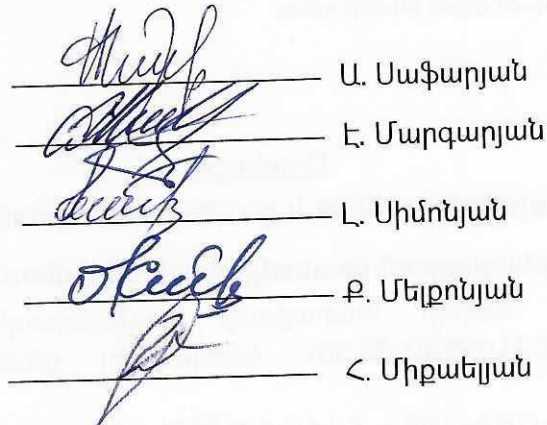 Ա. Սաֆարյան
Է. Մարգարյան
Լ. Սիմոնյան
Ք. Մելքոնյան
Հ. Միքաելյան